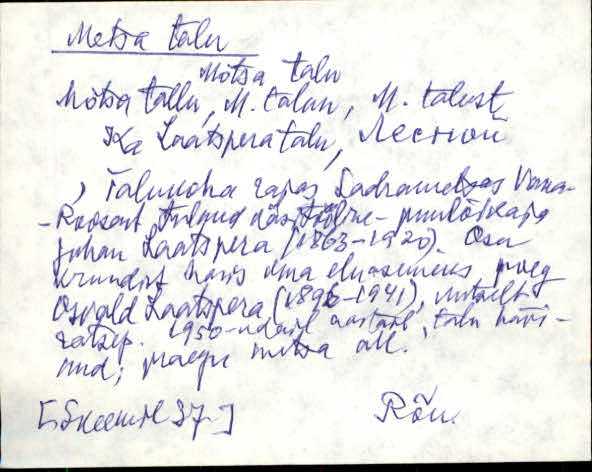 Metsa talu
Mõtsa talu
Mõtsa tallu, M. talun, M. talust
Ka Laatspera talu, Лесной
, Talukoha rajas Sadrametsas Vana-
-Roosast tulnud käsitööline - puulõikaja
Juhan Laatspera (1863-1920). Osa
krundist haris oma elu poeg
Osvald Laatspera (1896-1941),
rätsep. 1950-ndail aastail, talu hävi-
nud; praegu metsa all.
[Skeemil 37.]
Rõu.